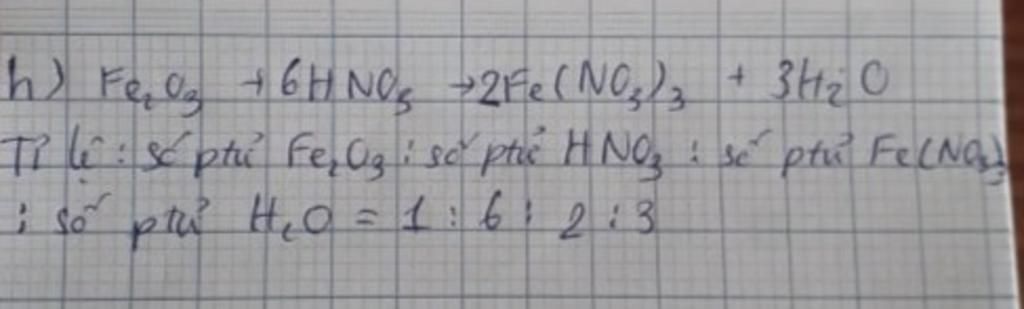 h) Fe₂O₃ + 6HNO₃ → 2Fe(NO₃)₃ + 3H₂O
Tỉ lệ : số ptử Fe₂O₃ : số ptử HNO₃ : số ptử Fe(NO₃)₃
: số ptử H₂O = 1 : 6 : 2 : 3